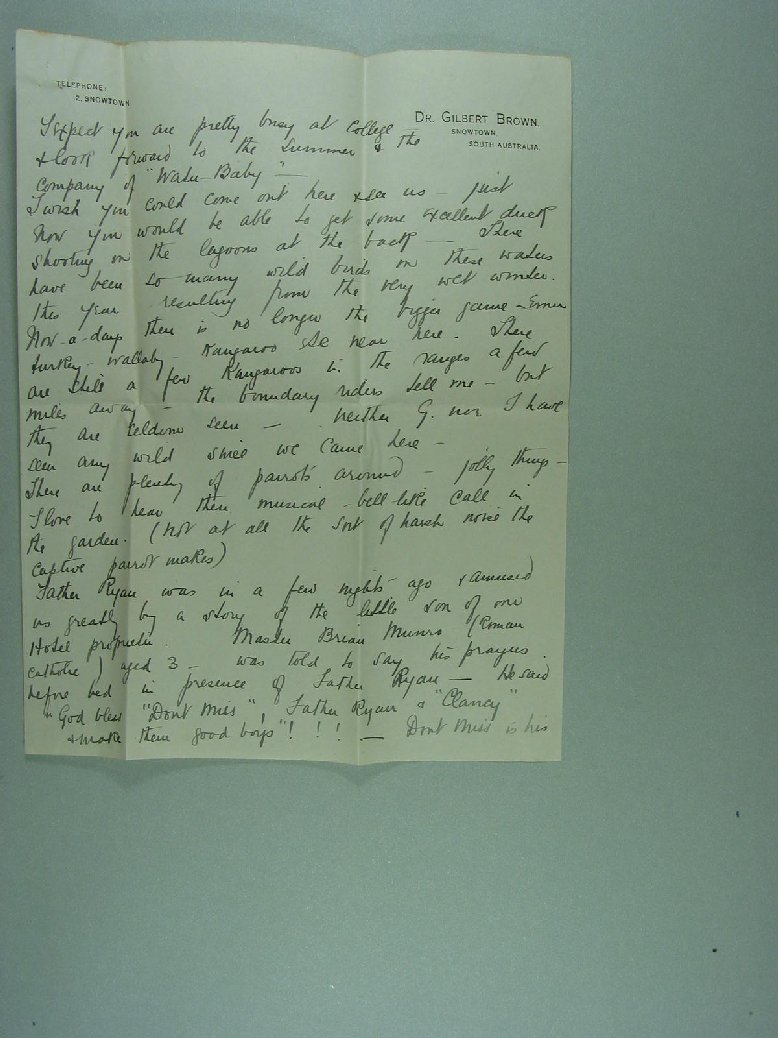 TELEPHONE:
2, SNOWTOWN.
DR. GILBERT BROWN.
SNOWTOWN,
SOUTH AUSTRALIA.
I expect you are pretty busy at College
& look forward to the Summer & the
company of "Water-Baby" —
I wish you could come out here & see us — just
Now you would be able to get some excellent duck
shooting on the lagoons at the back — There
have been so many wild birds on these waters
this year resulting from the very wet winter.
Now-a-days there is no longer the bigger game — Emu
turkey - wallaby - Kangaroo &c near here. There
are still a few Kangaroos in the ranges a few
miles away — the boundary riders tell me — but
they are seldom seen — neither G. nor I have
seen any wild since we came here —
There are plenty of parrots around — jolly things —
I love to hear their musical - bell-like call in
the garden. (not at all the sort of harsh noise the
captive parrot makes)
Father Ryan was in a few nights ago & amused
us greatly by a story of the little son of one
Hotel proprietor. Master Brian Munro (Roman
Catholic) aged 3 — was told to say his prayers
before bed in presence of Father Ryan — He said
"God bless "Dont Miss", Father Ryan & "Clancy"
& make them good boys"!!! — Dont Miss is his